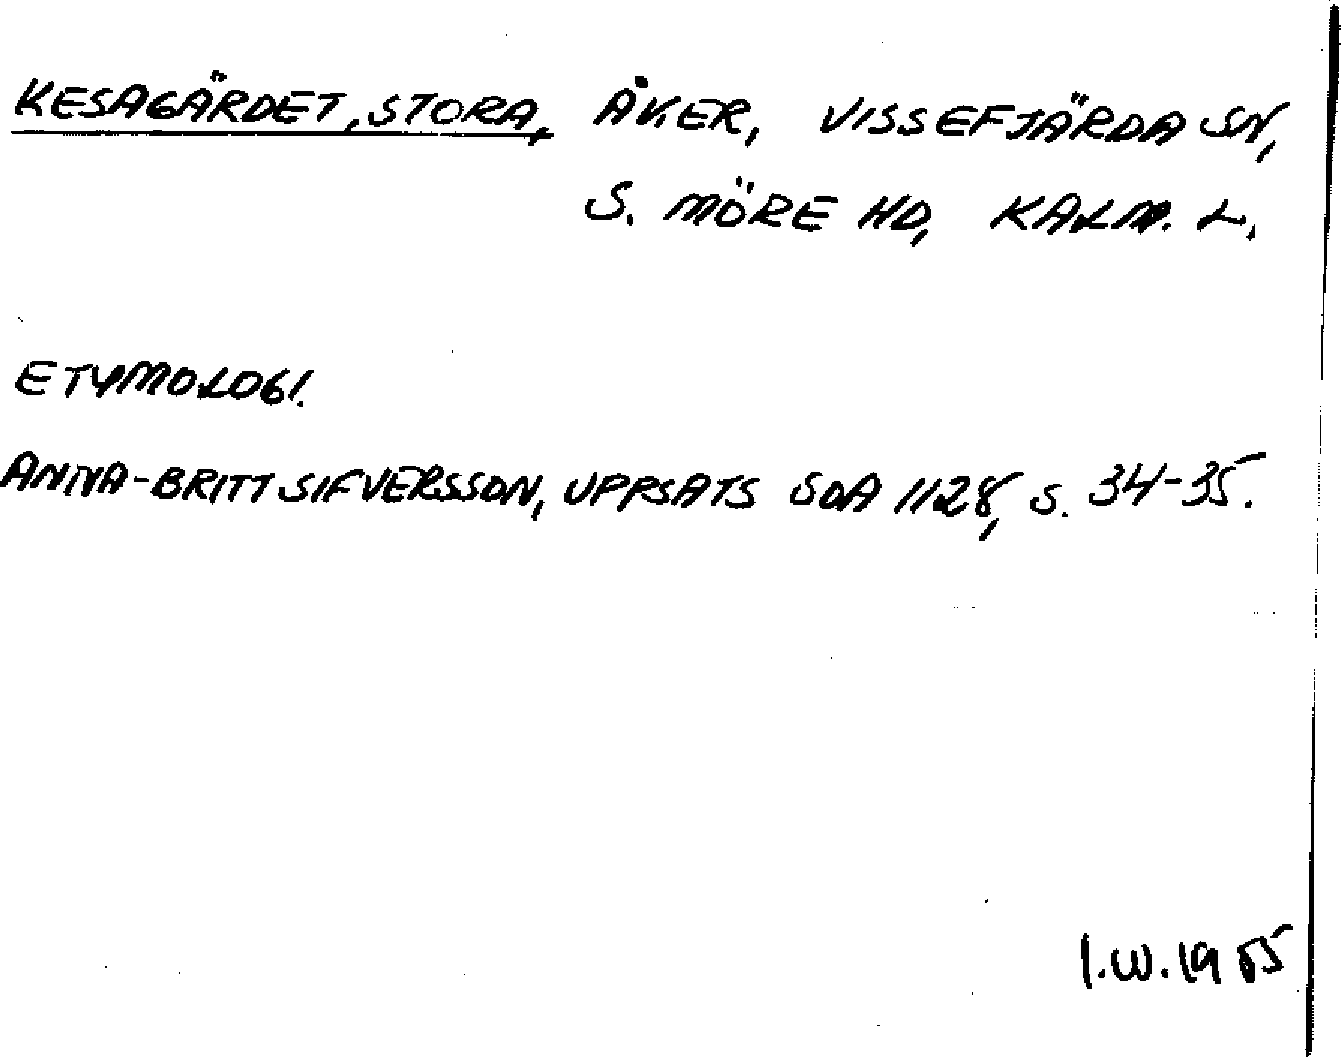 KESAGÄRDET, STORA, ÅKER, VISSEFJÄRDA SN,
S. MÖRE HD, KALM. L.
ETYMOLOGI.
ANNA-BRITT SIFVERSSON, UPPSATS SOA 1128, S. 34-35.
I.W. 1955